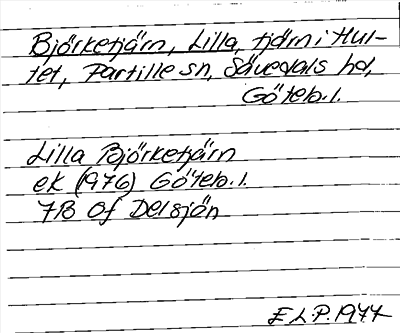 Björketjärn, Lilla, tjärn i Hul-
tet, Partille sn, Sävedals hd,
Göteb. l.
Lilla Björketjärn
ek (1976) Göteb. l.
7B 0f Delsjön
E L.P. 1977